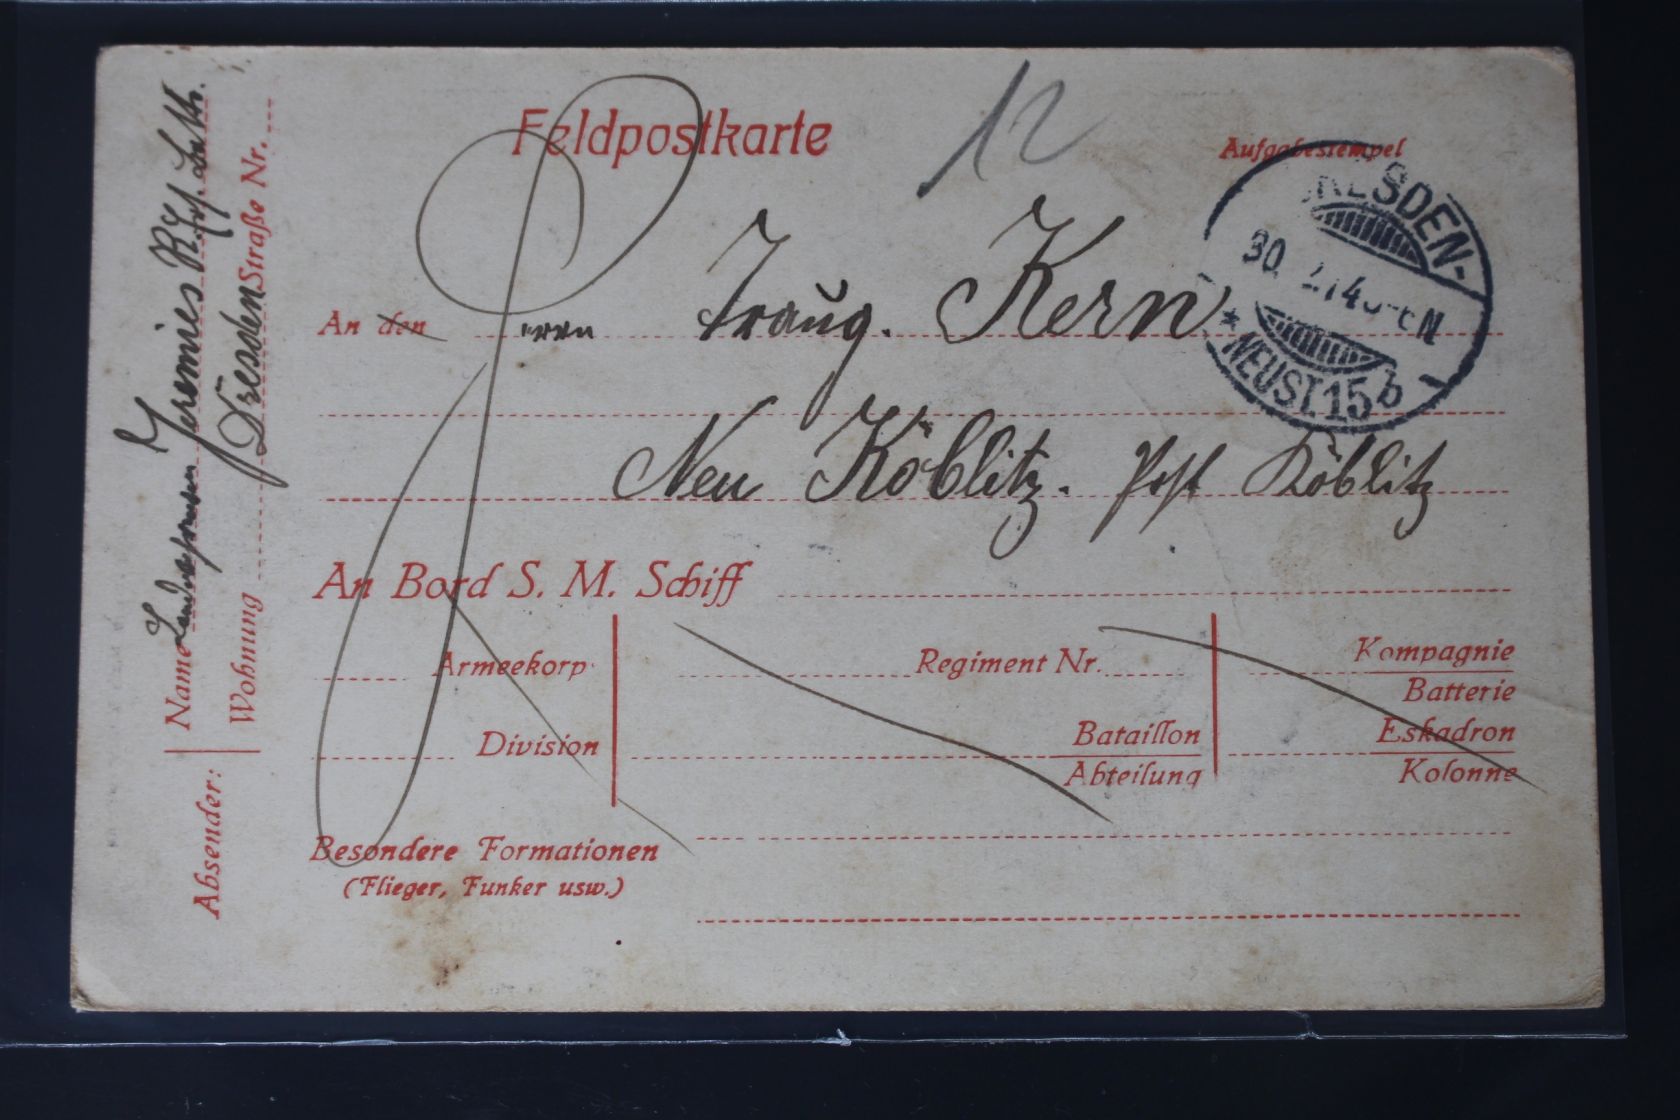 Feldpostkarte
12
Aufgabestempel
DRESDEN-
30.
NEUST. 15 b
An den Herrn Traug. Kern
Neu Köblitz. Post Köblitz
An Bord S. M. Schiff
Armeekorp
Regiment Nr.
Kompagnie
Batterie
Division
Bataillon
Eskadron
Abteilung
Kolonne
Besondere Formationen
(Flieger, Funker usw.)
Absender:
Name Jeremies
Dresden
Wohnung Straße Nr.